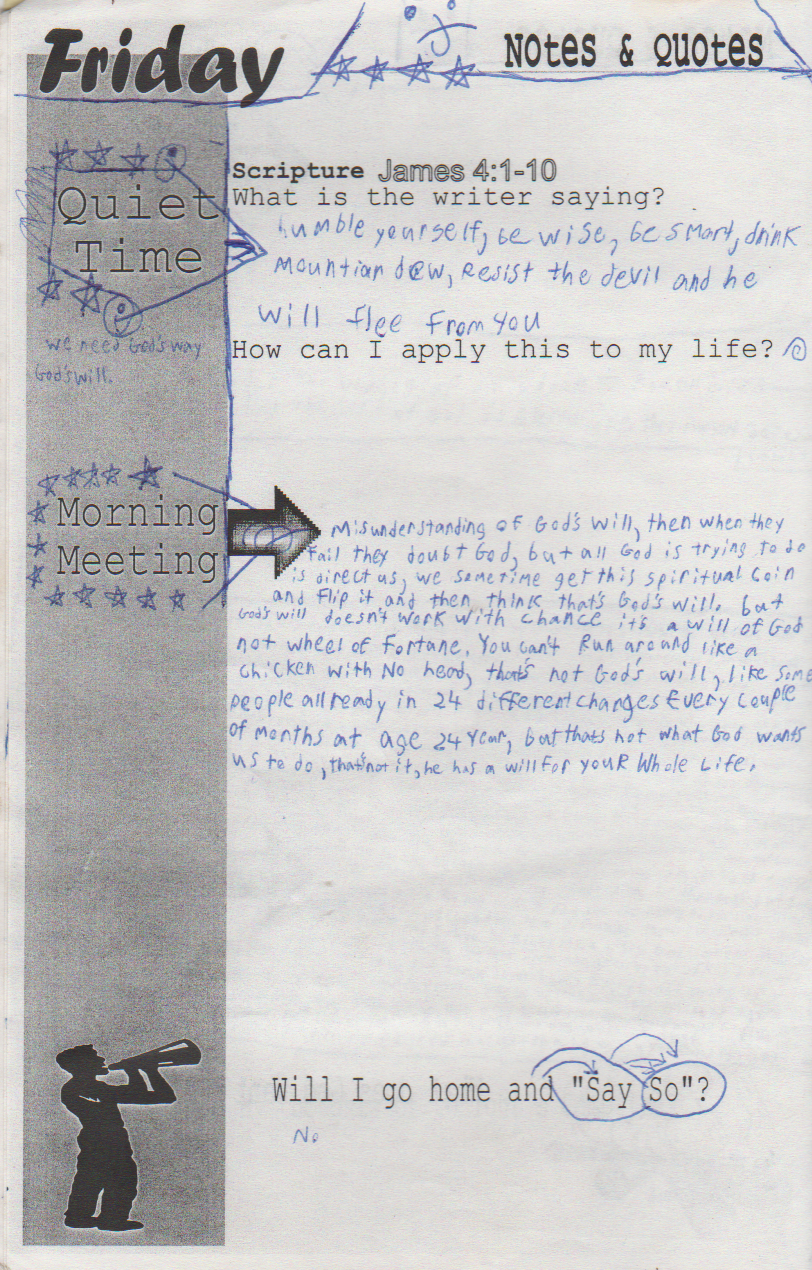 Friday
Notes & Quotes
Quiet
Time
we need God's way
God's will.
Scripture James 4:1-10
What is the writer saying?
humble yourself, be wise, be smart, drink
Mountian dew, Resist the devil and he
will flee from you
How can I apply this to my life?
Morning
Meeting
Misunderstanding of God's will, then when they
fail they doubt God, but all God is trying to do
is direct us, we sometime get this spiritual coin
and flip it and then think that's God's will. but
God's will doesn't work with chance it's a will of God
not wheel of fortune. You can't Run around like a
chicken with No head, that's not God's will, like some
people allready in 24 different changes Every couple
of months at age 24 year, but thats not what God wants
us to do, that's not it, he has a will for your Whole Life.
Will I go home and "Say So"?
No